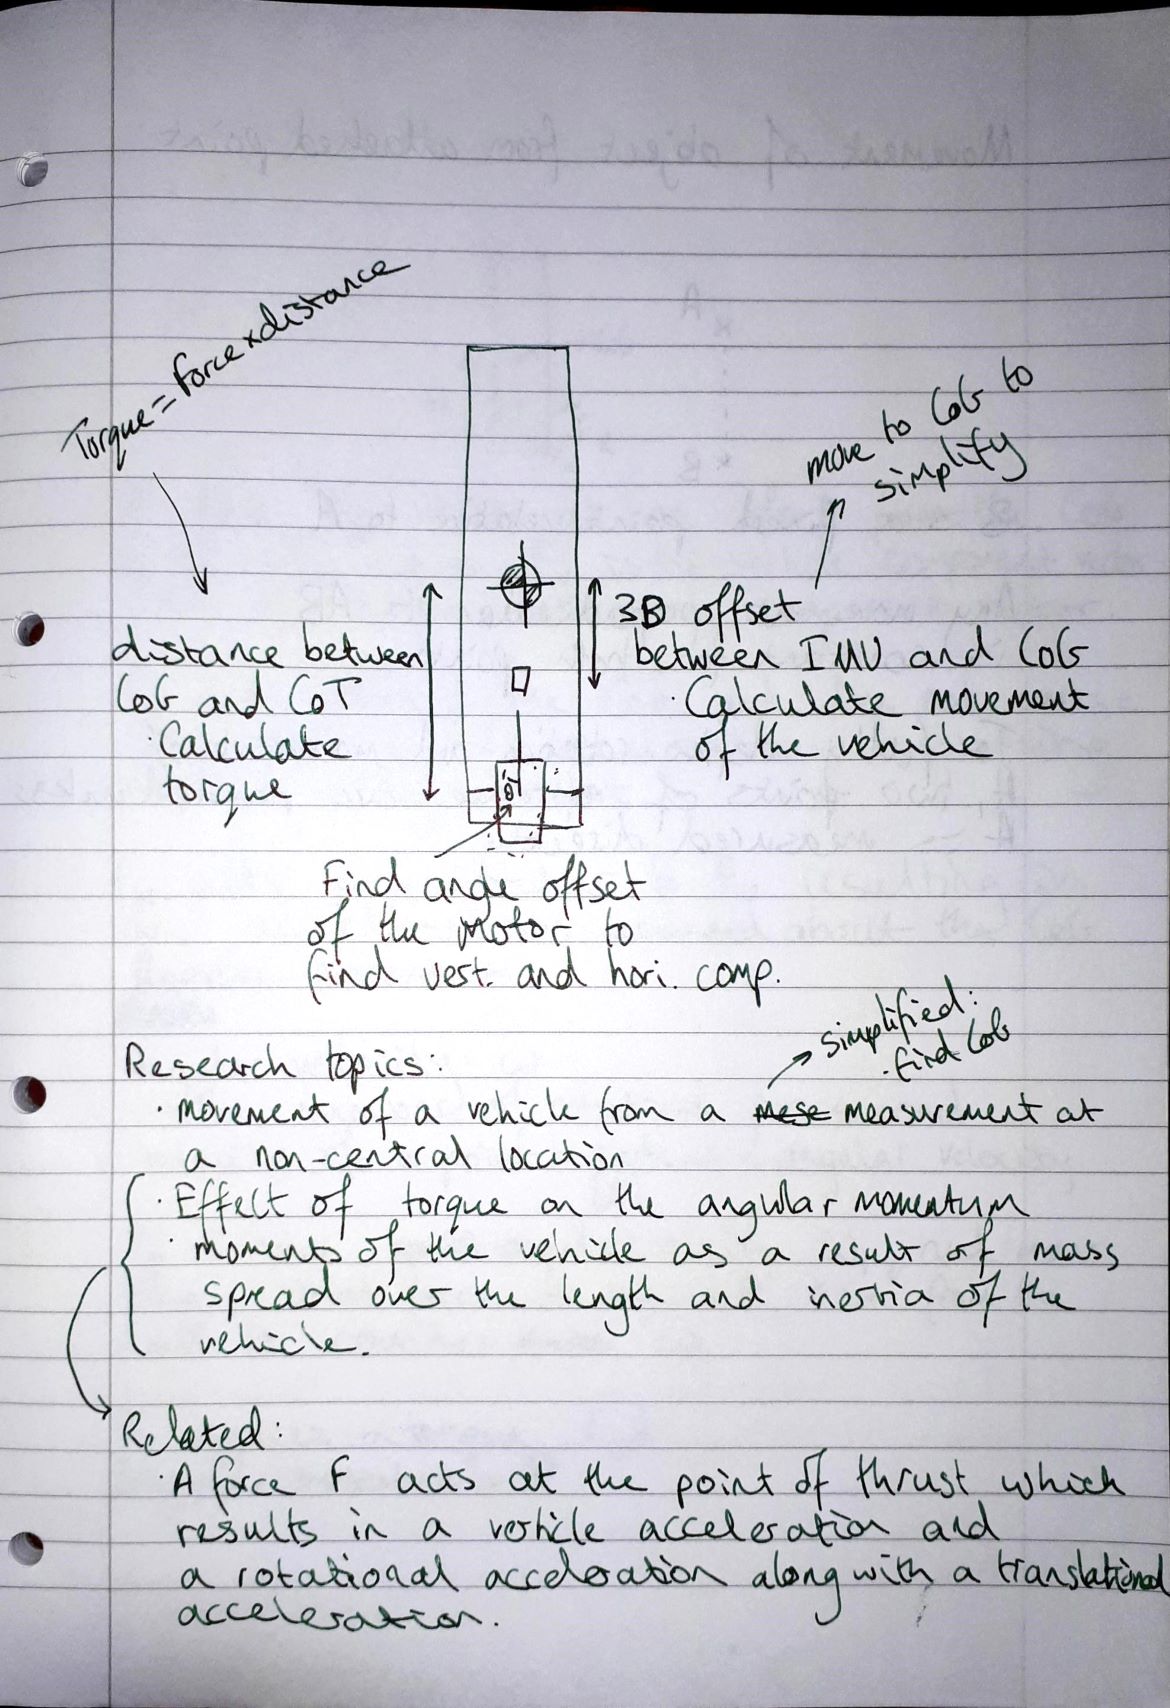 Torque = force × distance
move to CoG to
simplify
distance between
CoG and CoT
· Calculate
torque
3D offset
between IMU and CoG
· Calculate movement
of the vehicle
θ
Find angle offset
of the motor to
find vert. and hori. comp.
simplified:
· find CoG
Research topics:
· movement of a vehicle from a mese measurement at
a non-central location
· Effect of torque on the angular momentum
· moments of the vehicle as a result of mass
spread over the length and inertia of the
vehicle.
Related:
· A force F acts at the point of thrust which
results in a vehicle acceleration and
a rotational acceleration along with a translational
acceleration.